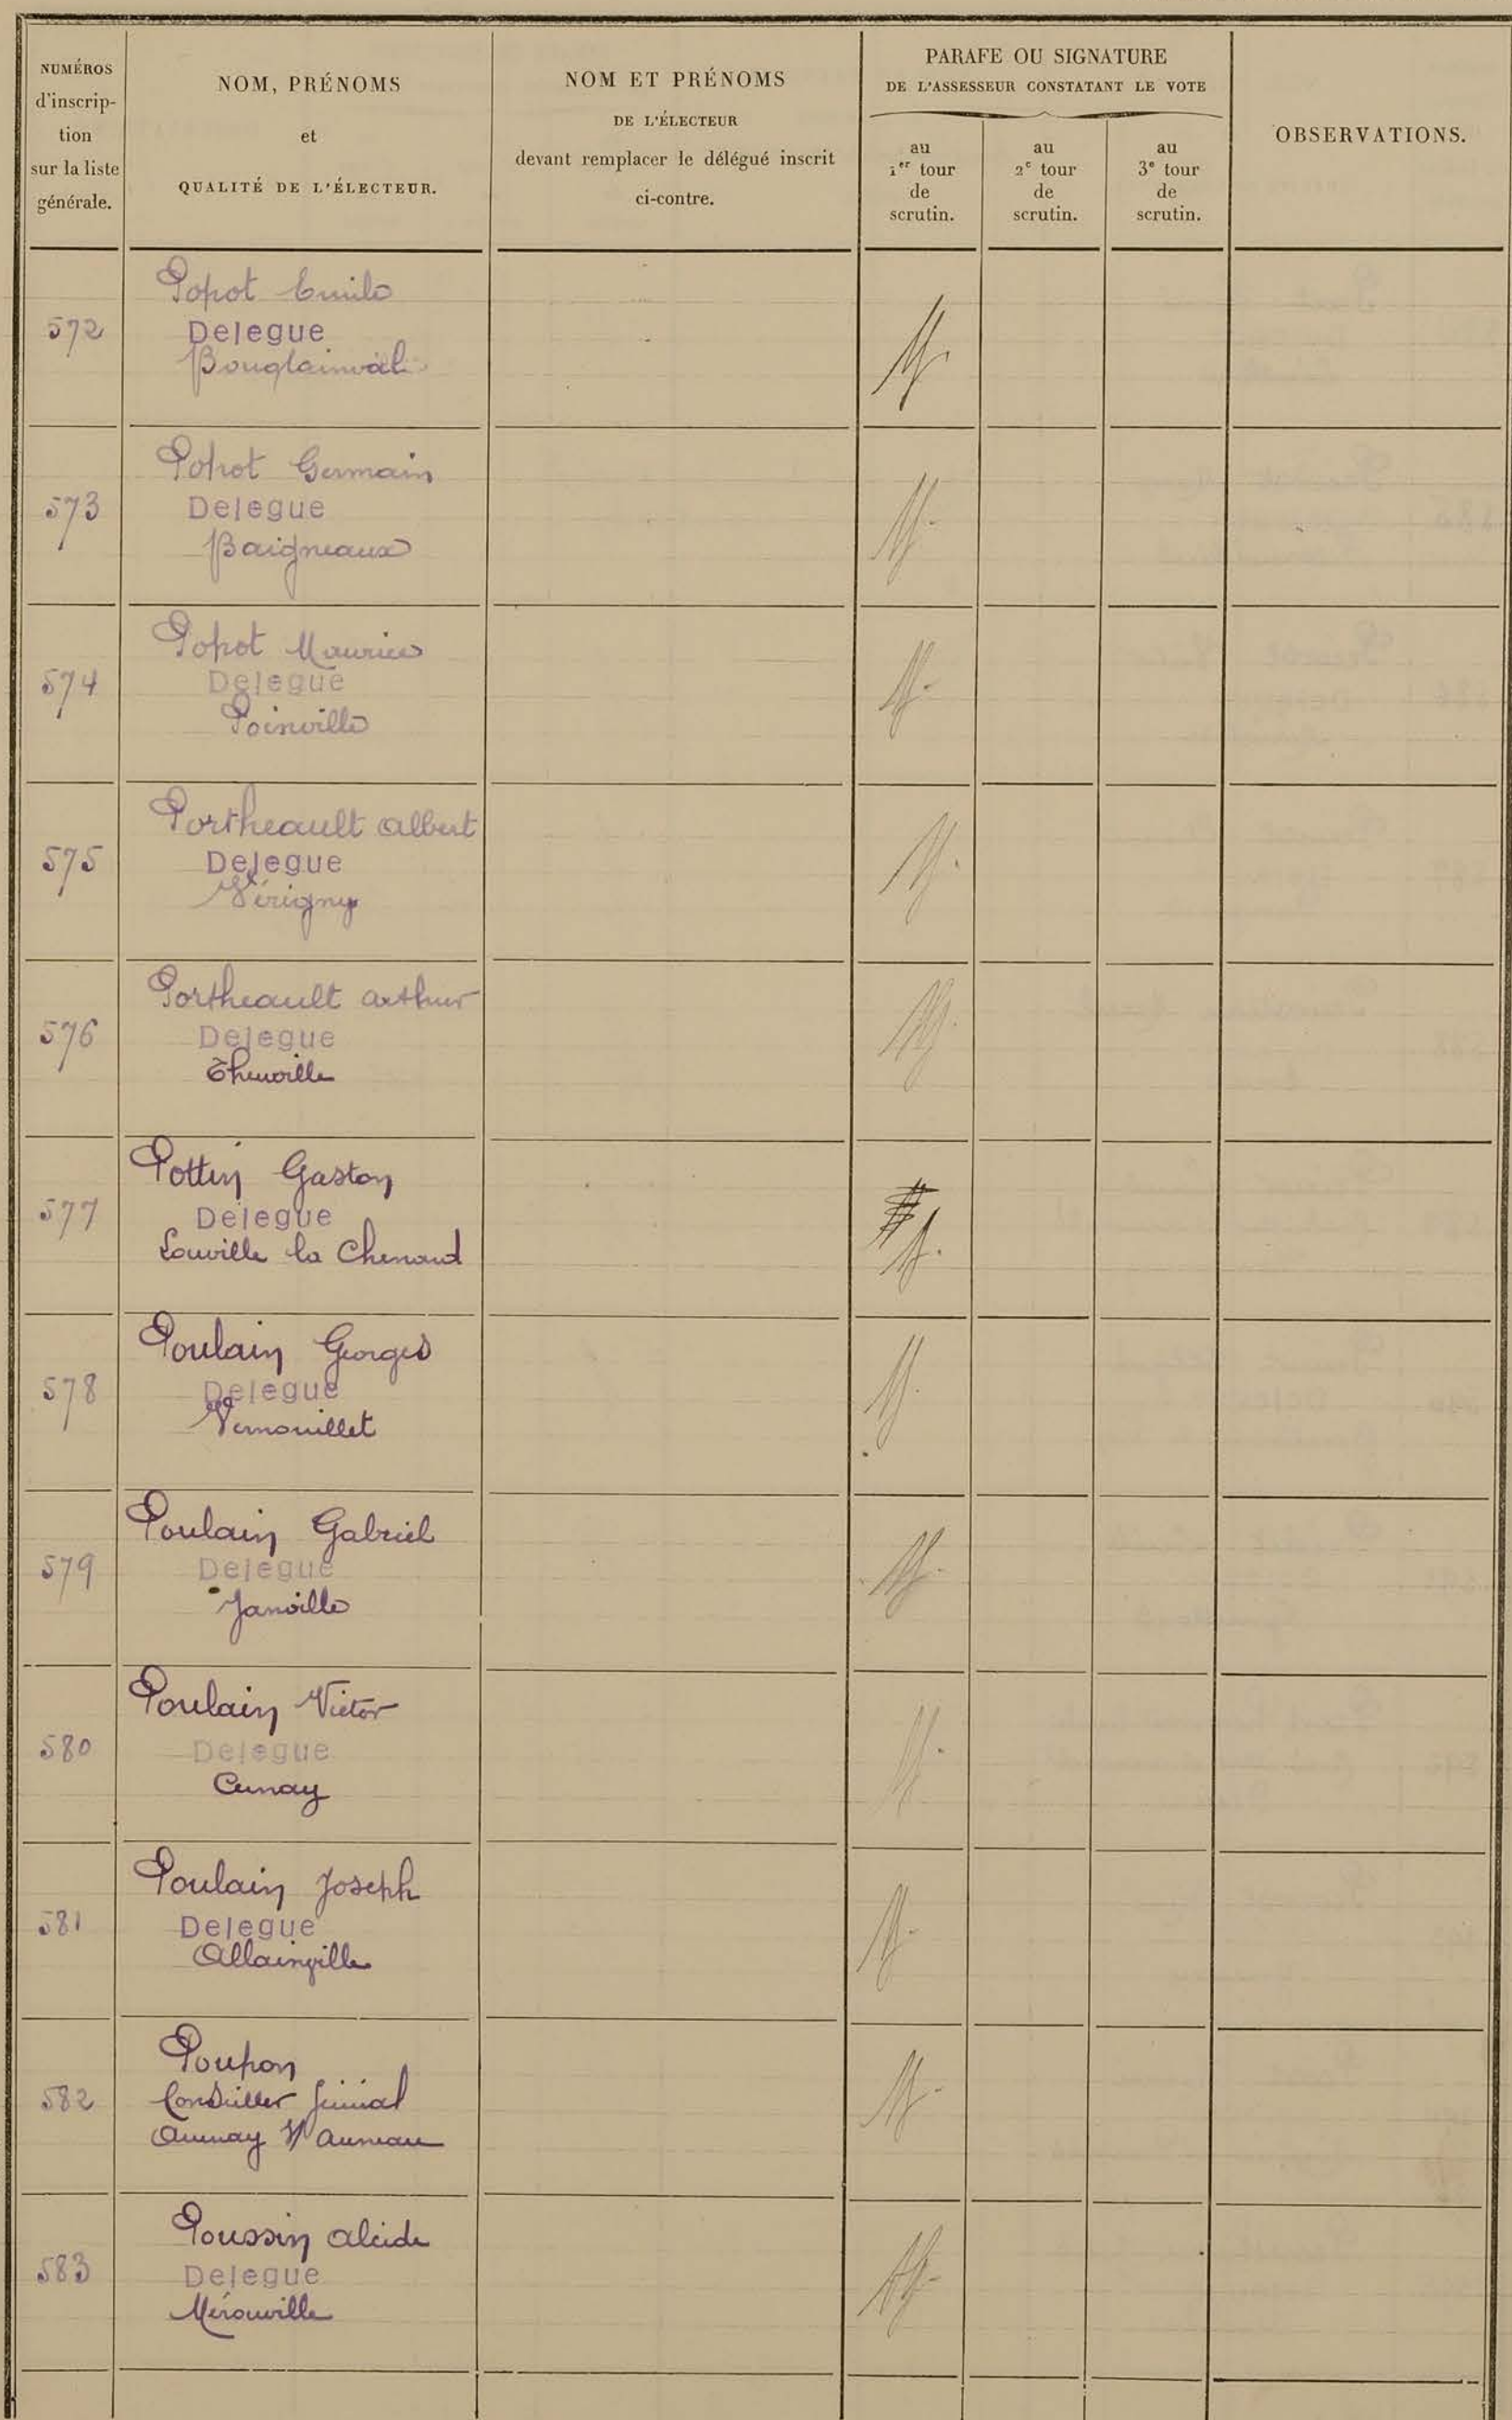 NUMÉROS
d'inscrip-
tion
sur la liste
générale.
NOM, PRÉNOMS
et
QUALITÉ DE L'ÉLECTEUR.
NOM ET PRÉNOMS
DE L'ÉLECTEUR
devant remplacer le délégué inscrit
ci-contre.
PARAFE OU SIGNATURE
DE L'ASSESSEUR CONSTATANT LE VOTE
au
1er tour
de
scrutin.
au
2e tour
de
scrutin.
au
3e tour
de
scrutin.
OBSERVATIONS.
Popot Emile
572 Delegue
Bouglainval
Popot Germain
573 Delegue
Baigneaux
Popot Maurice
574 Delegue
Poinville
Portheault Albert
575 Delegue
Vérigny
Portheault Arthur
576 Delegue
Theuville
Pottin Gaston
577 Delegue
Louville la Chenard
Poulain Georges
578 Delegue
Vernouillet
Poulain Gabriel
579 Delegue
Janville
Poulain Victor
580 Delegue
Cernay
Poulain Joseph
581 Delegue
Allainville
Poupon
582 Conseiller
Aunay s/ Auneau
Poussin Alcide
583 Delegue
Mérouville